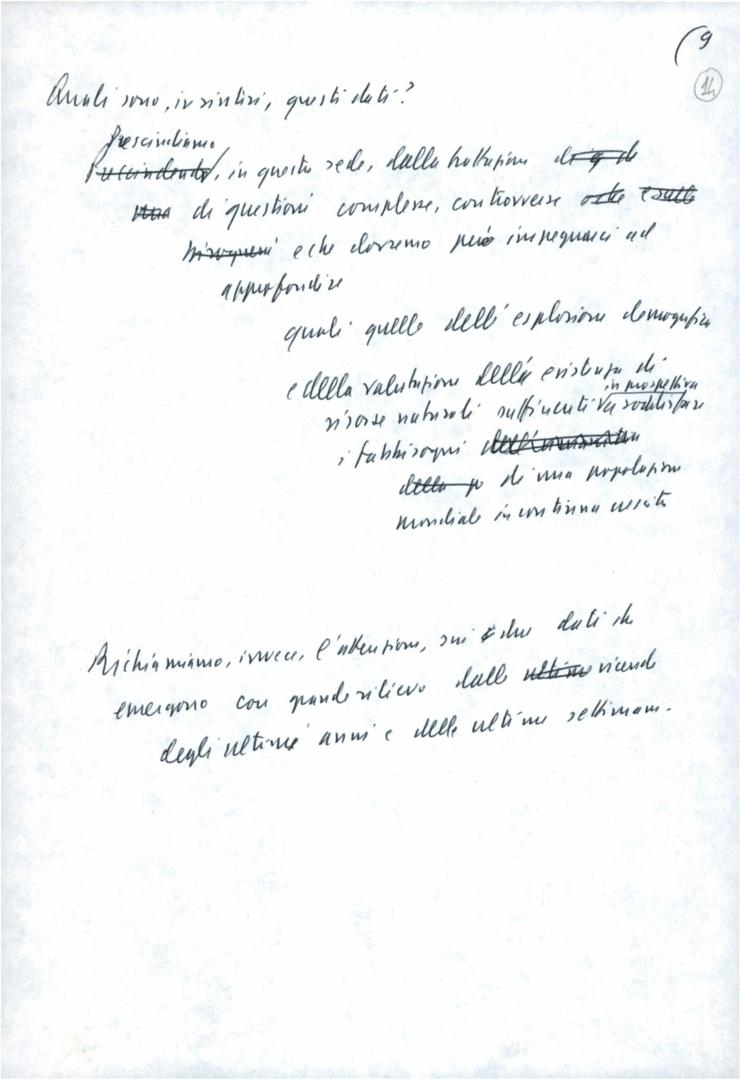 (9
14
Quali sono, in sintesi, questi dati?
Prescindiamo
Prescindendo, in questa sede, dalla trattazione
una di questioni complesse, controverse
bisognerà e che dovremo però impegnarci ad
approfondire
quali quelle dell'esplosione demografica
e della valutazione della esistenza di
in prospettiva
risorse naturali sufficienti a soddisfare
i fabbisogni
della po di una popolazione
mondiale in continua crescita
Richiamiamo, invece, l'attenzione, sui due dati che
emergono con grande rilievo dalle ultime vicende
degli ultimi anni e delle ultime settimane.